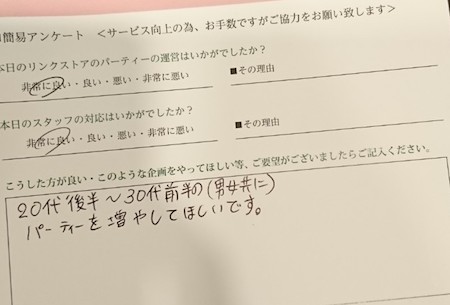 簡易アンケート <サービス向上の為、お手数ですがご協力をお願い致します>
本日のリンクストアのパーティーの運営はいかがでしたか?
非常に良い・良い・悪い・非常に悪い
■その理由
本日のスタッフの対応はいかがでしたか?
非常に良い・良い・悪い・非常に悪い
■その理由
こうした方が良い・このような企画をやってほしい等、ご要望がございましたらご記入ください。
20代後半~30代前半の(男女共に)
パーティーを増やしてほしいです。